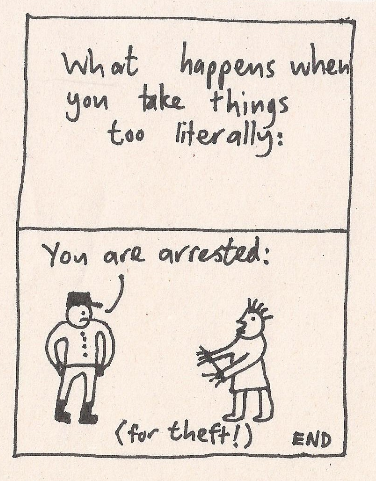 What happens when
you take things
too literally:
You are arrested:
(for theft!)
END